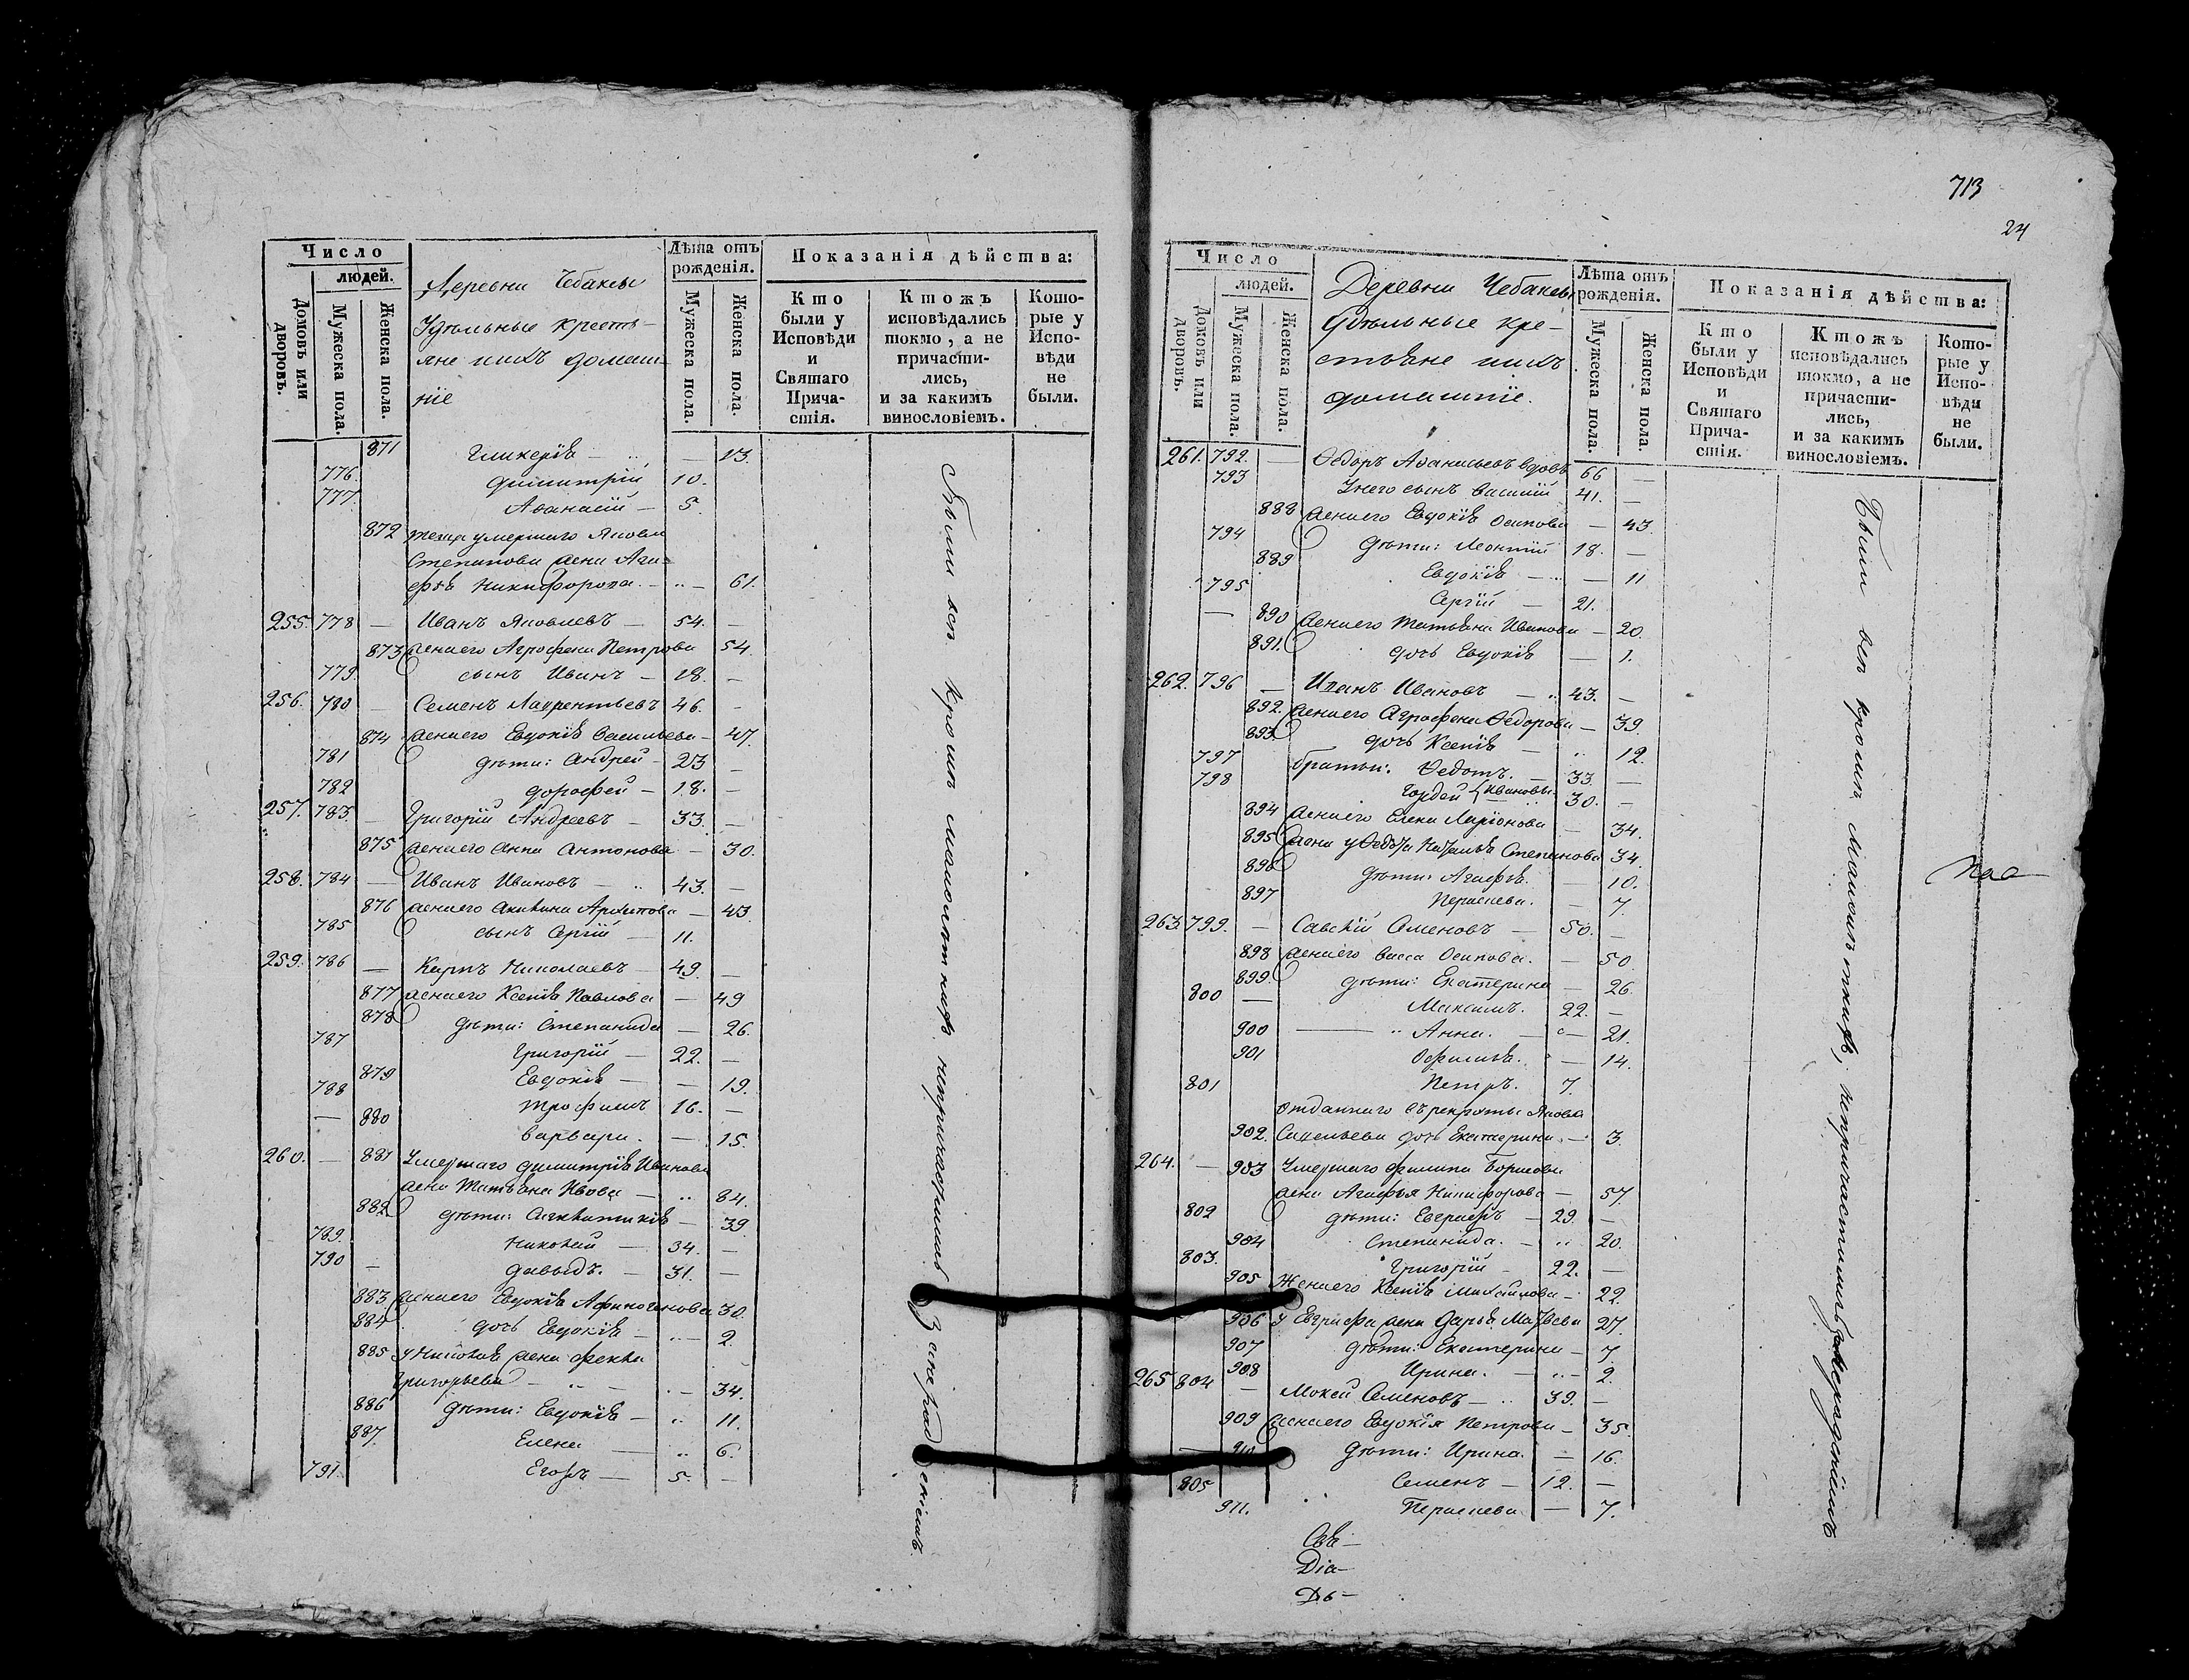 Число
людей.
Домовъ или дворовъ.
Мужеска пола.
Женска пола.
Деревни Чебаксы
Удѣльные кресть-
яне иихъ домаш-
ніе
Лѣта отъ рожденія.
Мужеска пола.
Женска пола.
Показанія дѣйства:
Кто были у Исповѣди и Святаго Причастія.
Ктожъ исповѣдались токмо, а не причастились, и за какимъ винословіемъ.
Которые у Исповѣди не были.
871 Гликерія — 13.
776. Димитрій 10.
777. Аѳанасій — 5.
872 Умершаго Якова
Степанова жена Ага-
фья Никифорова — 61.
255. 778 — Иванъ Яковлевъ — 54. —
873 жена его Агрофена Петрова 54
779. сынъ Иванъ — 18. —
256. 780 — Семенъ Лаврентьевъ 46. —
874 жена его Евдокія Васильева — 47.
781 дѣти: Андрей — 23 —
782 Дорофей — 18. —
257. 783. — Григорій Андреевъ — 33. —
875 жена его Анна Антонова — 30.
258. 784 — Иванъ Ивановъ — 43. —
876 жена его Акилина Архипова — 43
785 сынъ Сергій — 11.
259. 786 — Карпъ Николаевъ — 49. —
877 жена его Ксенія Павлова — 49
878 дѣти: Степанида — 26.
787 Григорій — 22. —
879 Евдокія — — 19.
788 Трофимъ 16. —
— 880 Варвара. — 15.
260. — 881 Умершаго Димитрія Иванова
жена Татьяна Львова — 84.
882. дѣти: — 39.
789. — 34. —
790 — Давыдъ. — 31. —
883 жена его Евдокія Афиногенова 30.
884 дочь Евдокія — 2.
885 жена Фекла
Григорьева — 34.
886 дѣти: Евдокія — 11.
887. Елена — 6.
791. Егоръ — 5. —
Были всѣ кромѣ малолѣтнихъ непричастились
713
24
Число
людей.
Домовъ или дворовъ.
Мужеска пола.
Женска пола.
Деревни Чебаксы
Удѣльные кре-
стьяне иихъ
домашніе.
Лѣта отъ рожденія.
Мужеска пола.
Женска пола.
Показанія дѣйства:
Кто были у Исповѣди и Святаго Причастія.
Ктожъ исповѣдались токмо, а не причастились, и за какимъ винословіемъ.
Которые у Исповѣди не были.
261. 792. — Ѳедоръ Аѳанасьевъ вдовъ 66 —
793 У него сынъ Василій 41. —
888 жена его Евдокія Осипова — 43.
794 дѣти: Леонтій 18. —
889 Евдокія — — 11
795 Сергій — 21.
— 890 жена его Татьяна Иванова — 20.
891. дочь Евдокія — 1.
262. 796 — Иванъ Ивановъ — 43. —
892. жена его Агрофена Ѳедорова — 39.
893. дочь Ксенія — 12.
797 братья: Ѳедотъ. — 33. —
798 Гордей Ивановы 30. —
894 жена его Елена Ларіонова — 34.
895 жена у Ѳедота Наталья Степанова 34.
896 дѣти: Агафья. — 10.
897 Парасева. — 7.
263. 799. — Семеновъ — 50. —
898 жена его Васса Осипова. — 50.
899. дѣти: Екатерина — 26.
800 — Максимъ. 22. —
900 — Анна. — 21.
901 Офимья. — 14.
801 Петръ. 7.
Отданнаго въ рекруты Якова
902. Савельева дочь Екатерина — 3.
264. — 903 Умершаго Филипа Борисова
жена Агафья Никифорова — 57.
802 дѣти: Евграфъ — 29. —
904 Степанида. — 20.
803. Григорій — 22. —
905 Жена его Ксенія Михайлова — 22.
906 У Евграфа жена Дарья Матвева 27.
907 дѣти: Екатерина — 7
908 Ирина. — 2.
265 804 — Мокей Семеновъ — 39. —
909 жена его Евдокія Петрова — 35.
— 910 дѣти: Ирина. — 16.
805 Семенъ — 12. —
911. Парасева — 7.
Были всѣ кромѣ малолѣтнихъ, непричастились
Свя—
Dia—
Дь—